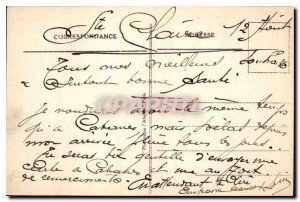 Ste Claire 12 Août
CORRESPONDANCE ADRESSE
Tous mes meilleurs souhaits
surtout bonne santé
Je voudrais avoir le même temps
qu'a Cabanes mais hélas depuis
mon arrivée pluie tous les jours
Tu serais bien gentille d'envoyer une
carte à Cabanes et une au Fort
de remerciements. En attendant le
encore